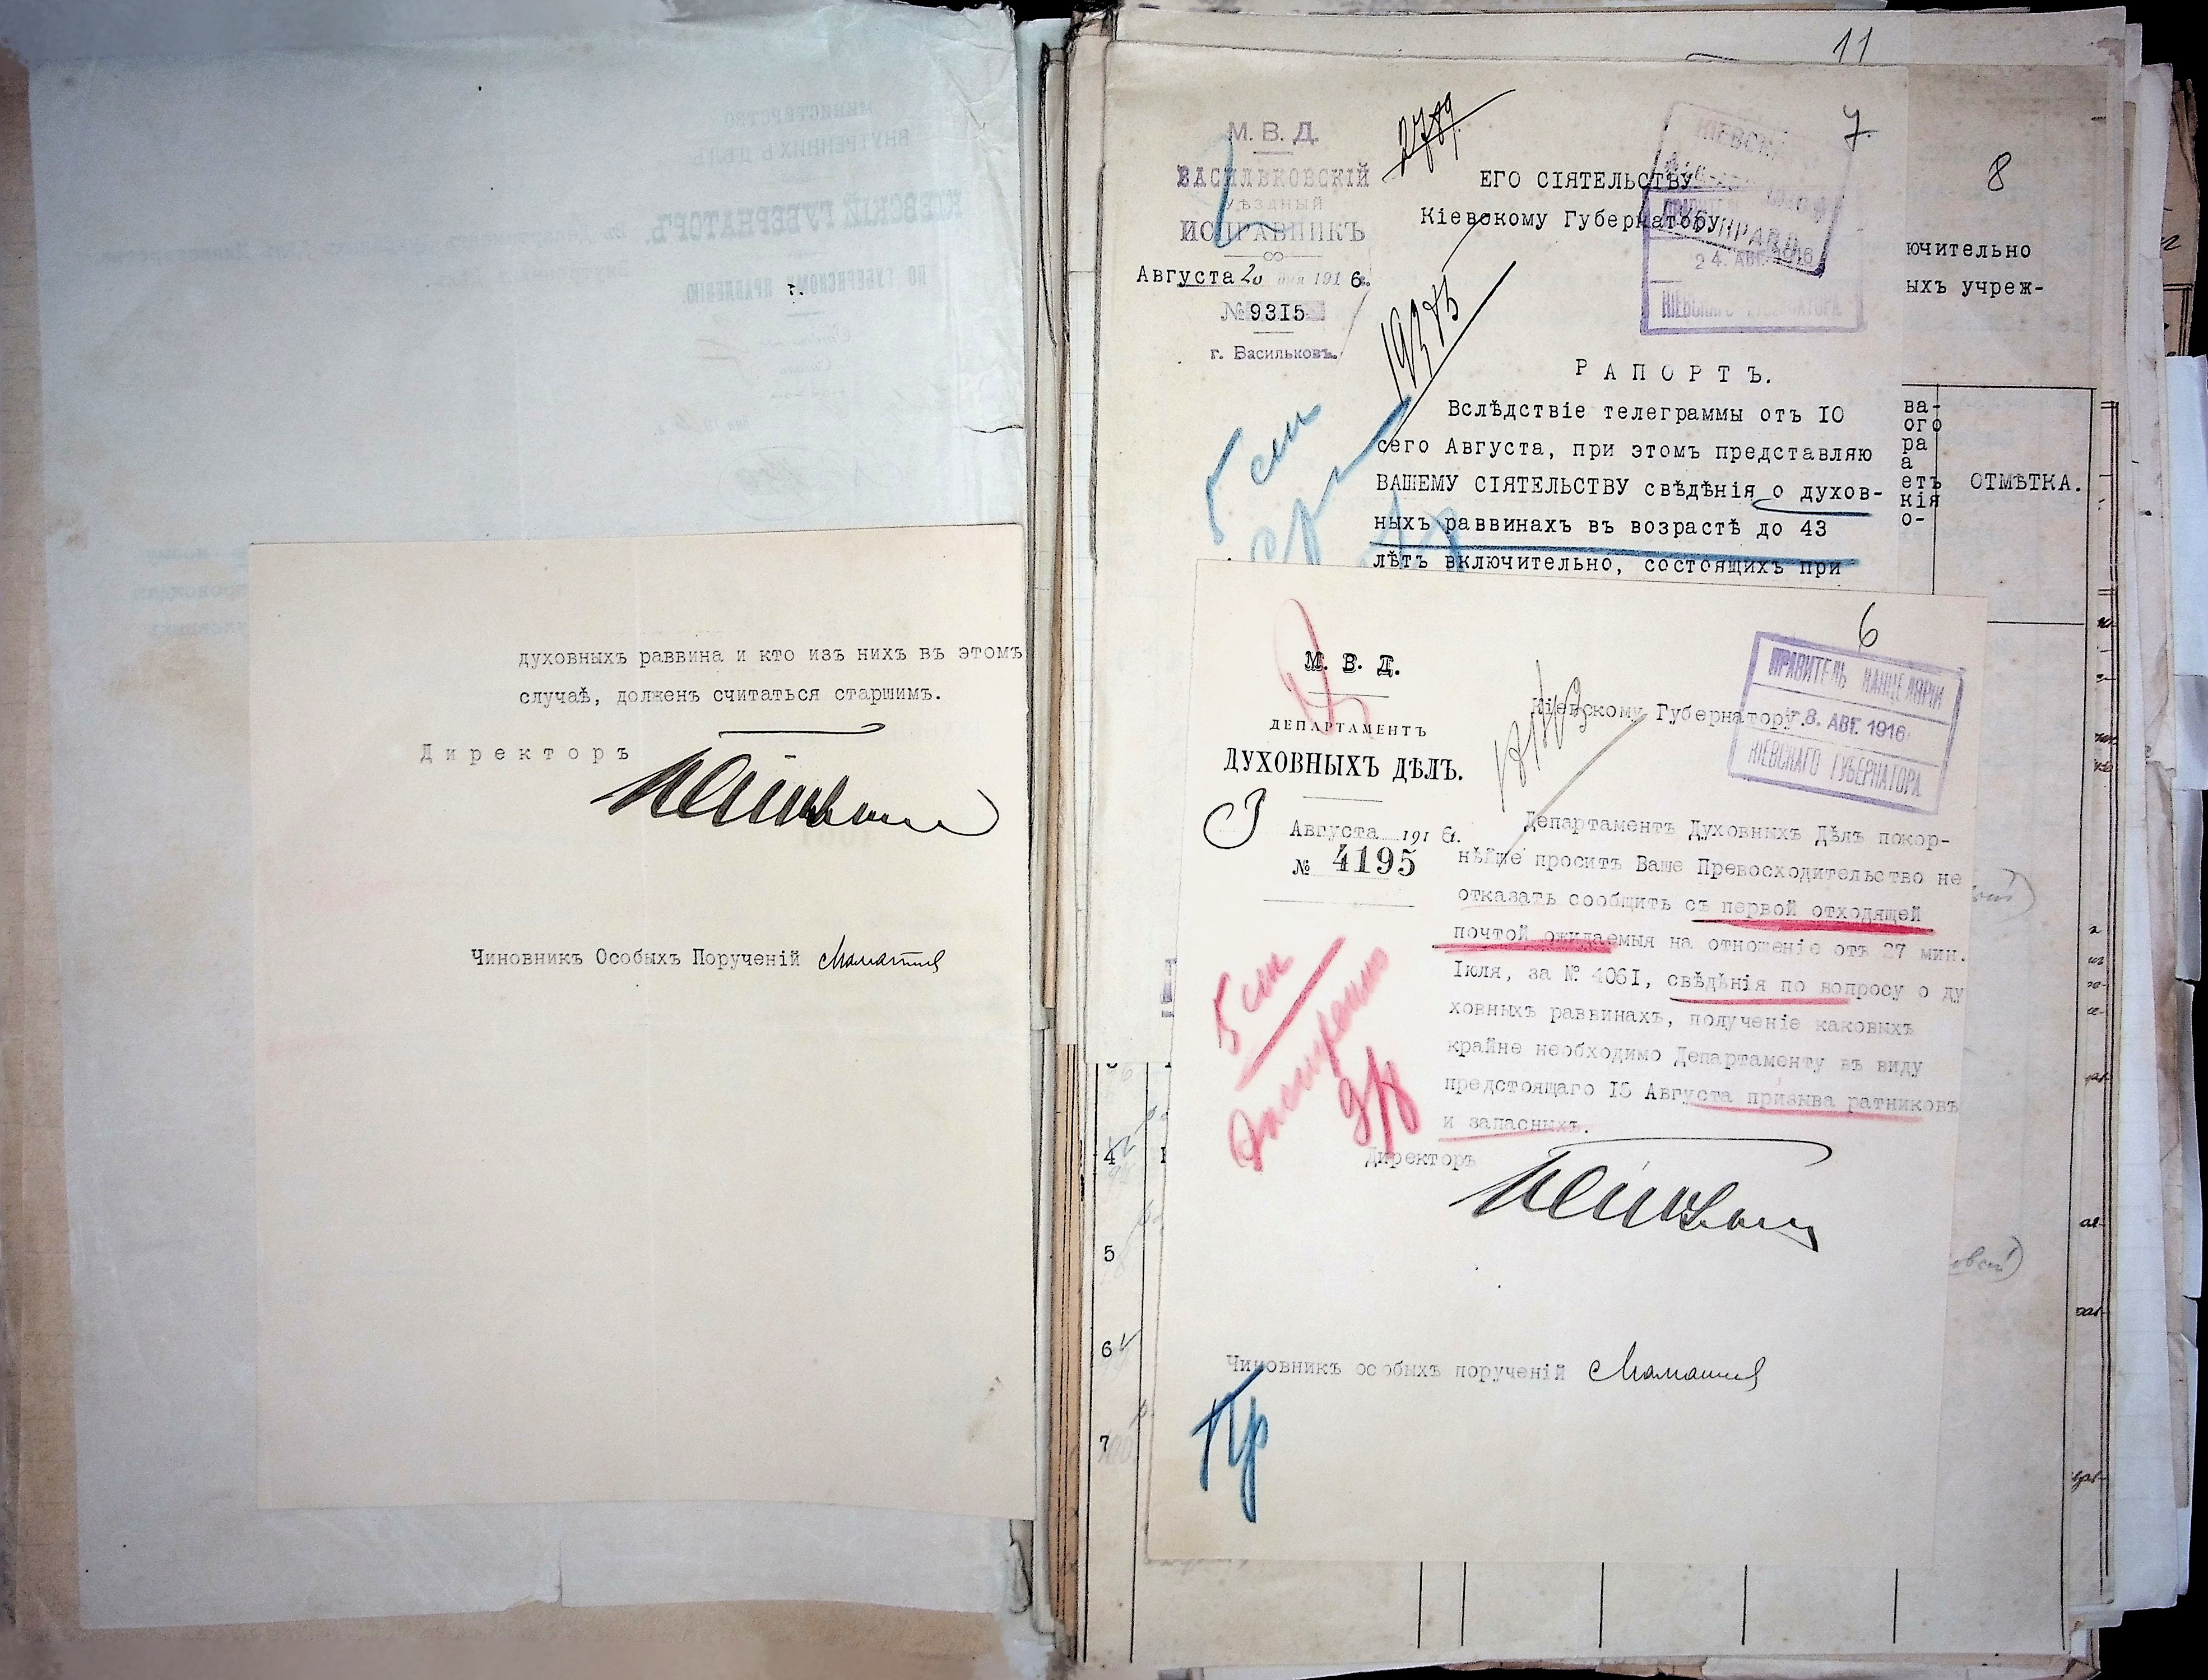 духовныхъ раввина и кто изъ нихъ въ этомъ
случаѣ, долженъ считаться старшимъ.
Директоръ
Чиновникъ Особыхъ Порученій
11
7.
8
М. В. Д.
ВАСИЛЬКОВСКІЙ
УѢЗДНЫЙ
ИСПРАВНИКЪ
Августа 20 дня 1916 г.
№ 9315
г. Васильковъ.
2789
19375
ЕГО СІЯТЕЛЬСТВУ
Кіевскому Губернатору
24. АВГ. 1916
КІЕВСКАГО ГУБЕРНАТОРА
РАПОРТЪ.
Вслѣдствіе телеграммы отъ 10
сего Августа, при этомъ представляю
ВАШЕМУ СІЯТЕЛЬСТВУ свѣдѣнія о духов-
ныхъ раввинахъ въ возрастѣ до 43
лѣтъ включительно, состоящихъ при
5 сн
ючительно
ыхъ учреж-
ва-
ого
ра
а
етъ
кія
о-
ОТМѢТКА.
6
М. В. Д.
ДЕПАРТАМЕНТЪ
ДУХОВНЫХЪ ДѢЛЪ.
3 Августа 1916 г.
№ 4195
Кіевскому Губернатору.
ПРАВИТЕЛЬ КАНЦЕЛЯРІИ
8. АВГ. 1916
КІЕВСКАГО ГУБЕРНАТОРА
Департаментъ Духовныхъ Дѣлъ покор-
нѣйше проситъ Ваше Превосходительство не
отказать сообщить съ первой отходящей
почтой ожидаемыя на отношеніе отъ 27 мин.
Іюля, за № 4061, свѣдѣнія по вопросу о ду
ховныхъ раввинахъ, полученіе каковыхъ
крайне необходимо Департаменту въ виду
предстоящаго 15 Августа призыва ратниковъ
и запасныхъ.
5 сн
Экстренно
9/8
Директоръ
Чиновникъ особыхъ порученій
Пр
4
5
6
7